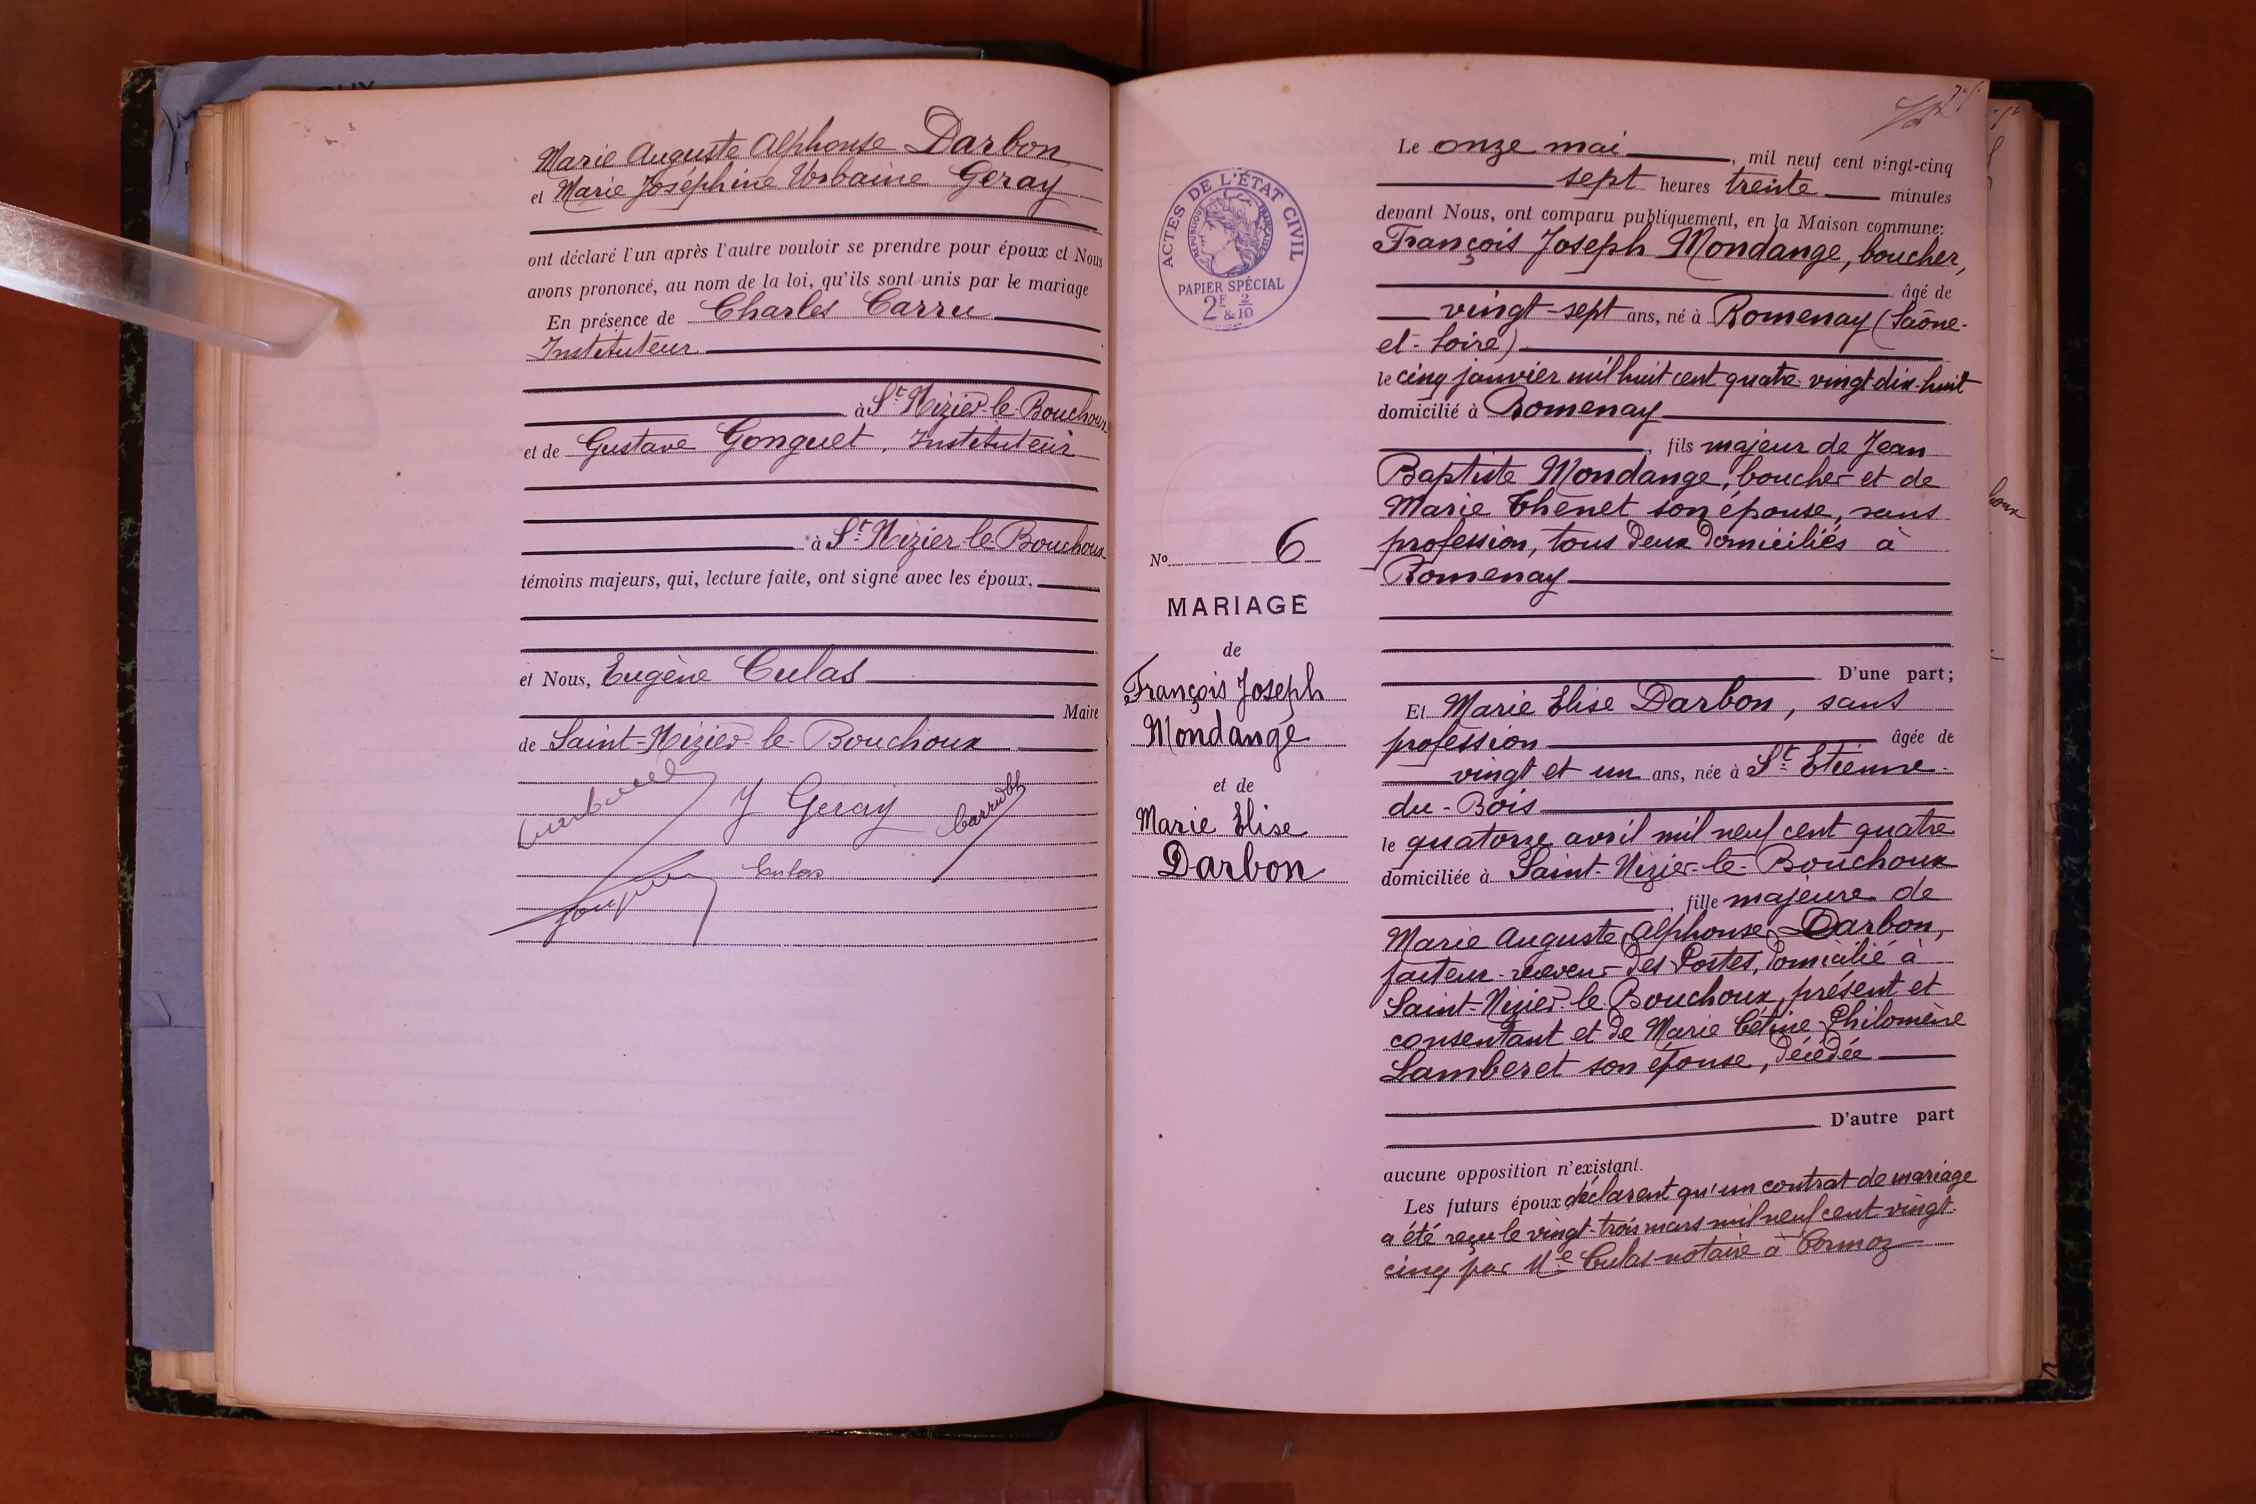 Marie Auguste Alphonse Darbon
et Marie Joséphine Urbaine Geray
ont déclaré l'un après l'autre vouloir se prendre pour époux et Nous
avons prononcé, au nom de la loi, qu'ils sont unis par le mariage
En présence de Charles Carru
Instituteur
à St Nizier-le-Bouchoux
et de Gustave Gonguet, Instituteur
à St Nizier-le-Bouchoux
témoins majeurs, qui, lecture faite, ont signé avec les époux.
et Nous, Eugène Culas
Maire
de Saint-Nizier-le-Bouchoux
J Geray
Culas
ACTES DE L'ÉTAT CIVIL
RÉPUBLIQUE FRANÇAISE
PAPIER SPÉCIAL
2F & 2/10
No 6
MARIAGE
de
François Joseph
Mondange
et de
Marie Elise
Darbon
Le onze mai, mil neuf cent vingt-cinq
sept heures trente minutes
devant Nous, ont comparu publiquement, en la Maison commune:
François Joseph Mondange, boucher,
âgé de
vingt-sept ans, né à Romenay (Saône-
et-Loire)
le cinq janvier mil huit cent quatre-vingt dix-huit
domicilié à Romenay
, fils majeur de Jean
Baptiste Mondange, boucher et de
Marie Thenet son épouse, sans
profession, tous deux domiciliés à
Romenay
D'une part;
Et Marie Elise Darbon, sans
profession âgée de
vingt et un ans, née à St Etienne-
du-Bois
le quatorze avril mil neuf cent quatre
domiciliée à Saint-Nizier-le-Bouchoux
, fille majeure de
Marie Auguste Alphonse Darbon,
facteur-receveur des Postes, domicilié à
Saint-Nizier-le-Bouchoux, présent et
consentant et de Marie Céline Philomène
Lamberet son épouse, décédée
D'autre part
aucune opposition n'existant.
Les futurs époux déclarent qu'un contrat de mariage
a été reçu le vingt-trois mars mil neuf cent vingt-
cinq par Me Culas notaire à Cormoz